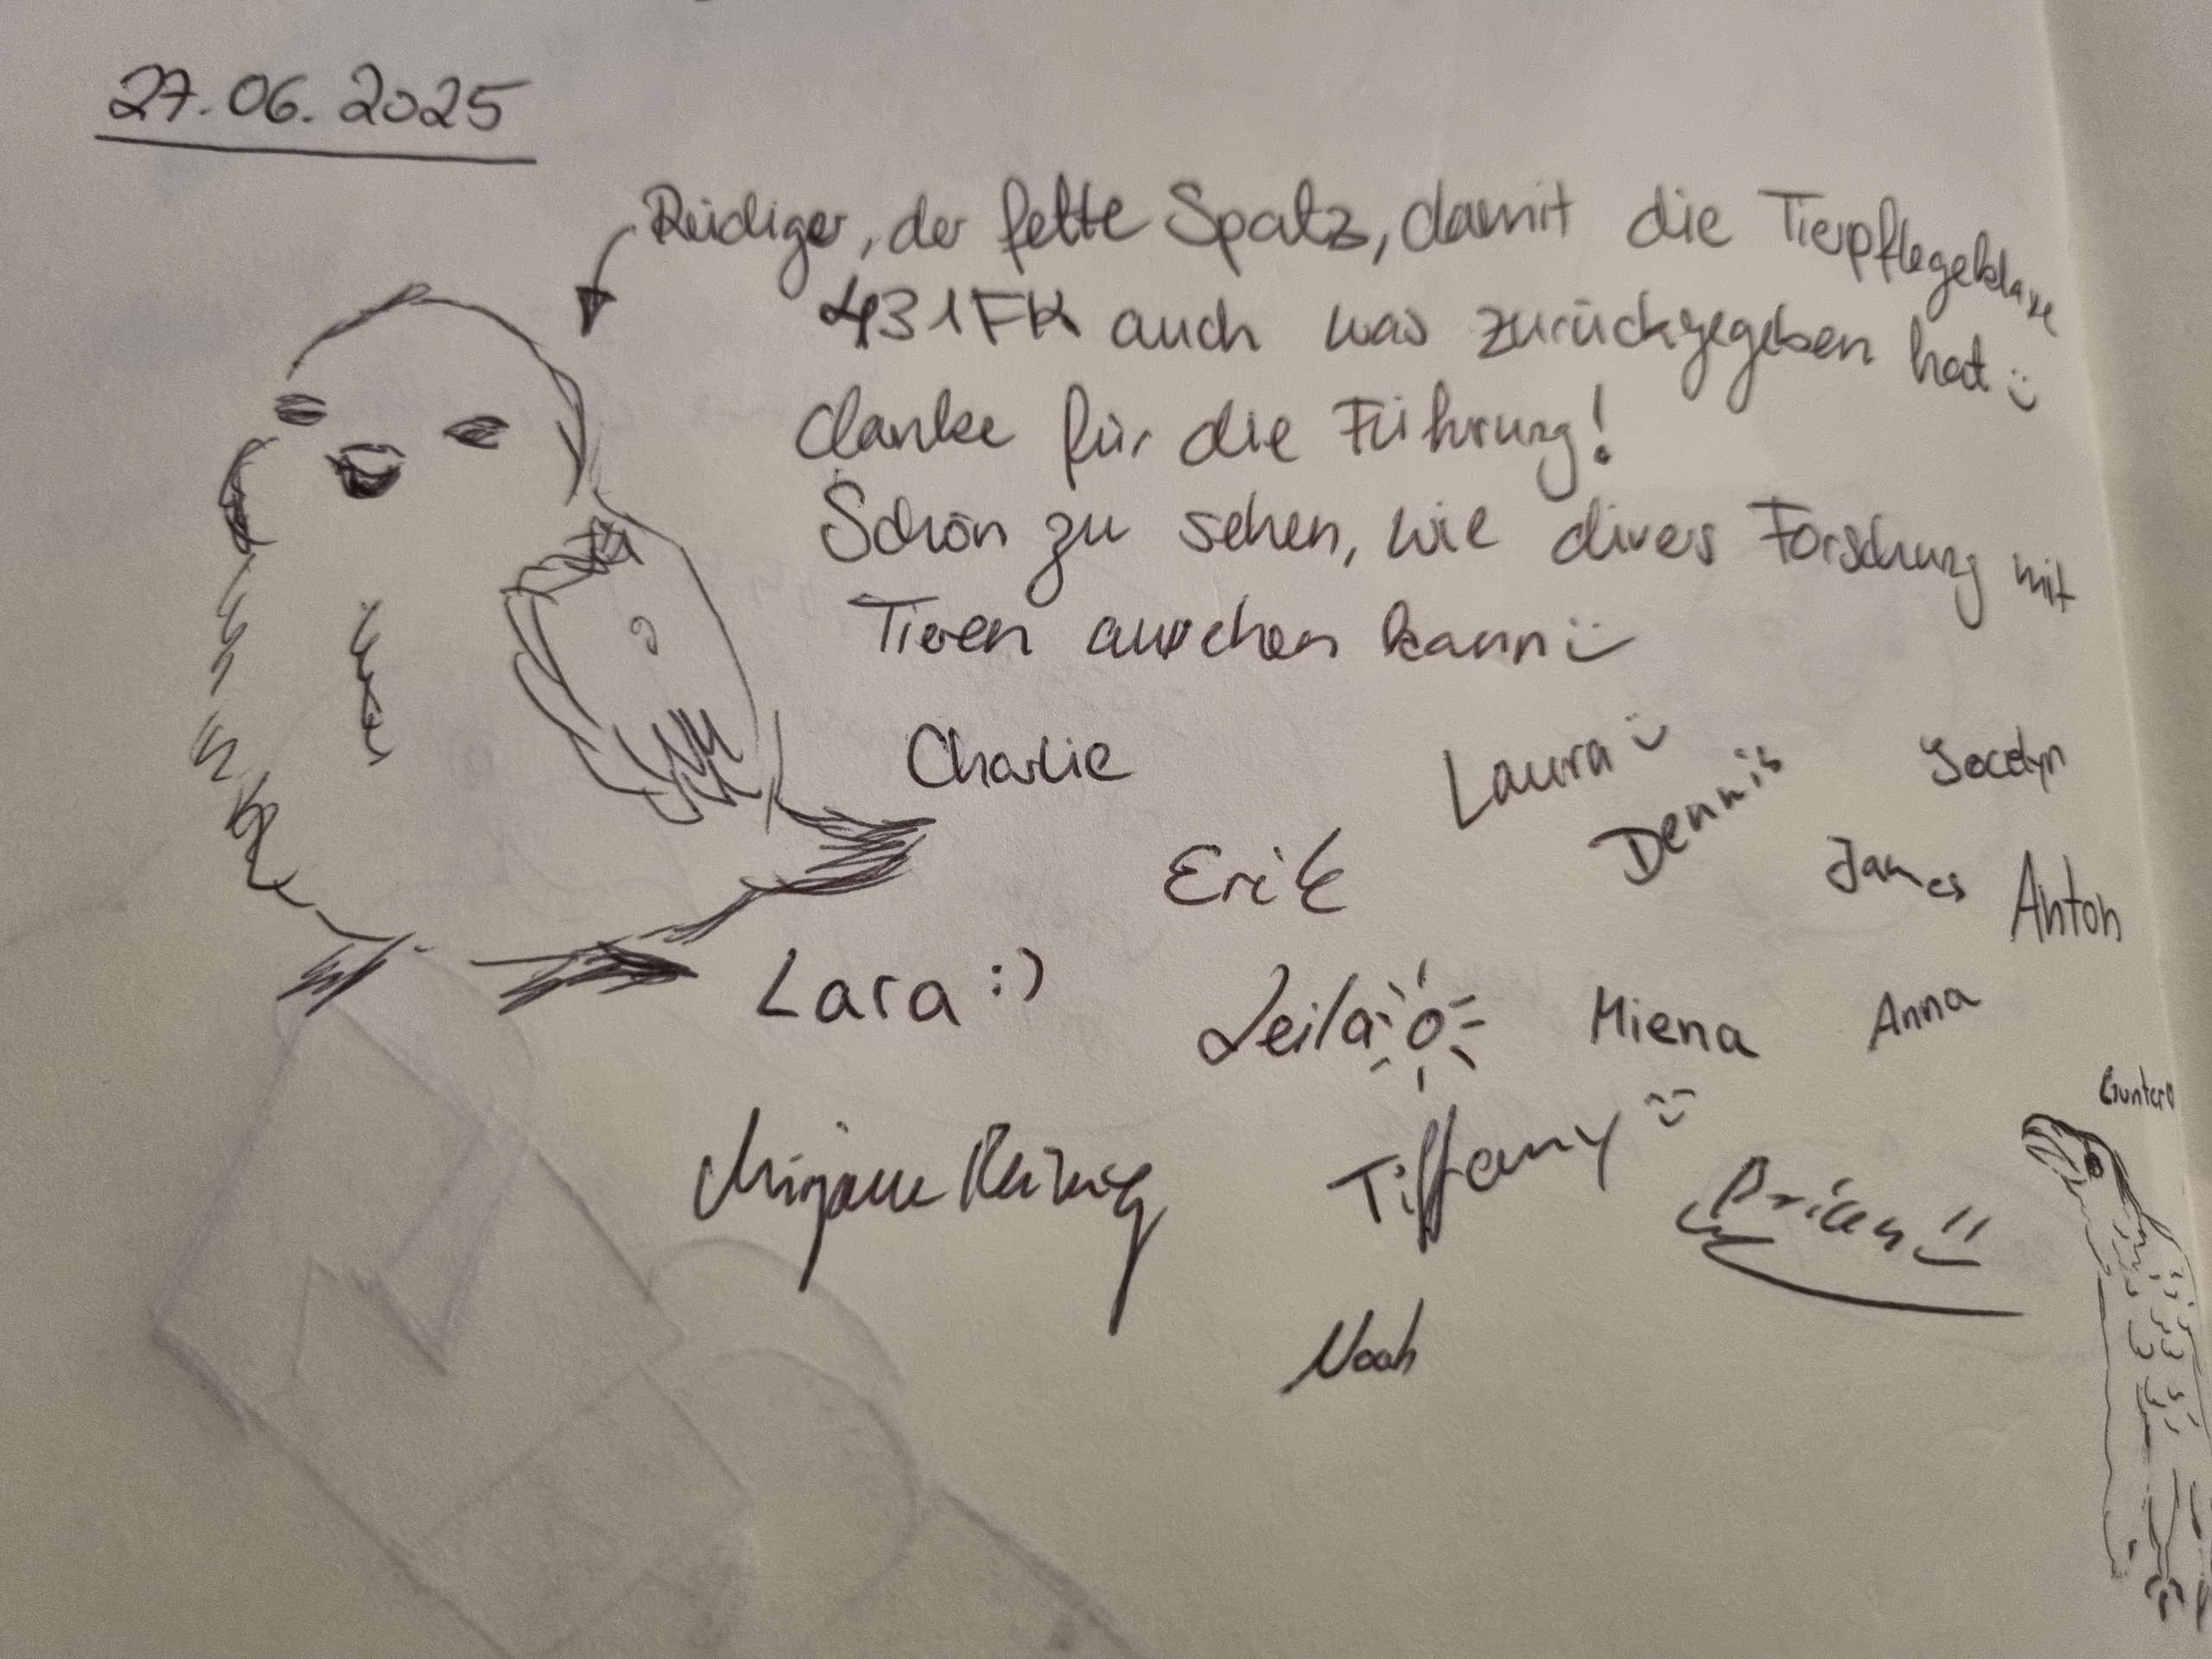 27.06.2025
Rüdiger, der fette Spatz, damit die Tierpflegeklasse
431FK auch was zurückgegeben hat :)
danke für die Führung!
Schön zu sehen, wie divers Forschung mit
Tieren aussehen kann :)
Charlie Laura :) Dennis Jocelyn
Erik James Anton
Lara :) Leila Miena Anna
Tiffany :) Guntero
Noah